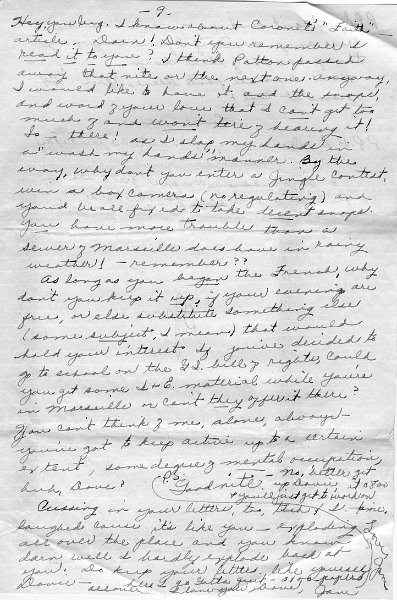 - 9 -
Hey, you lug. I know about Coronet's "Faith"
article, Darn! Don't you remember I
read it to you? I think Patton passed
away that nite or the next one. Anyway,
I would like to have it, and the snaps,
and word of your love that I can't get too
much of and won't tire of hearing it!
So - there! as I slap my hands in
a "wash my hands" manner. By the
way, why don't you enter a Jingle Contest,
win a box camera (no regulating) and
you'd be all fixed to take decent snaps.
You have more trouble than a
sewer of Marseille does have in rainy
weather! - remember??
As long as you began the French, why
don't you keep it up, if your evenings are
free, or else substitute something else
(some subject, I mean) that would
hold your interest. If you've decided to
go to school on the G.I. bill of rights, could
you get some I & E material while you're
in Marseille or can't they offer it there?
You can't think of me, alone, always -
you've got to keep active up to a certain
extent, some degree of mental occupation,
huh, Dove? P.S. No, better get
Good nite, up Dovie, it's 8:00
& you'll just get to work on
Cussing in your letter, to, tish! I
laughed cause it's like you - exploding
all over the place and you know
darn well I hardly explode back at
you. Do keep your letters, like yourself,
Dovie - here I go
sooner I love you Dovie, Jane